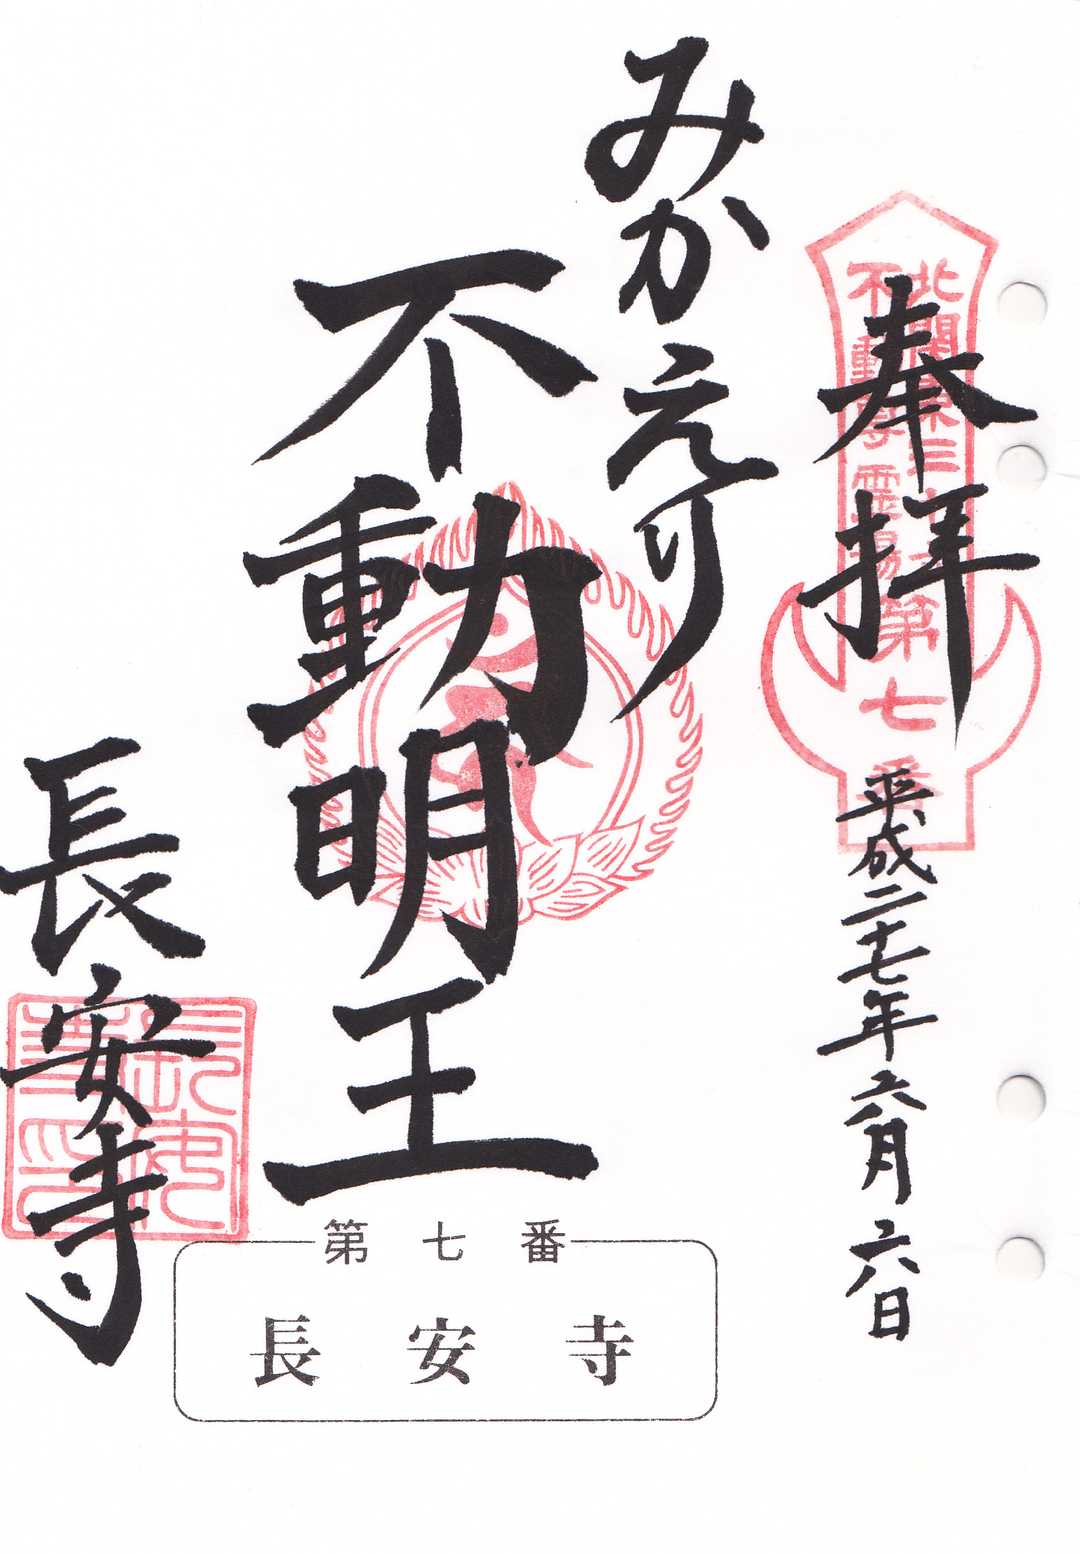 奉拝
北関東三十六
不動尊霊場第
七番
平成二十七年六月六日
みかえり
不動明王
長安寺
第七番
長安寺